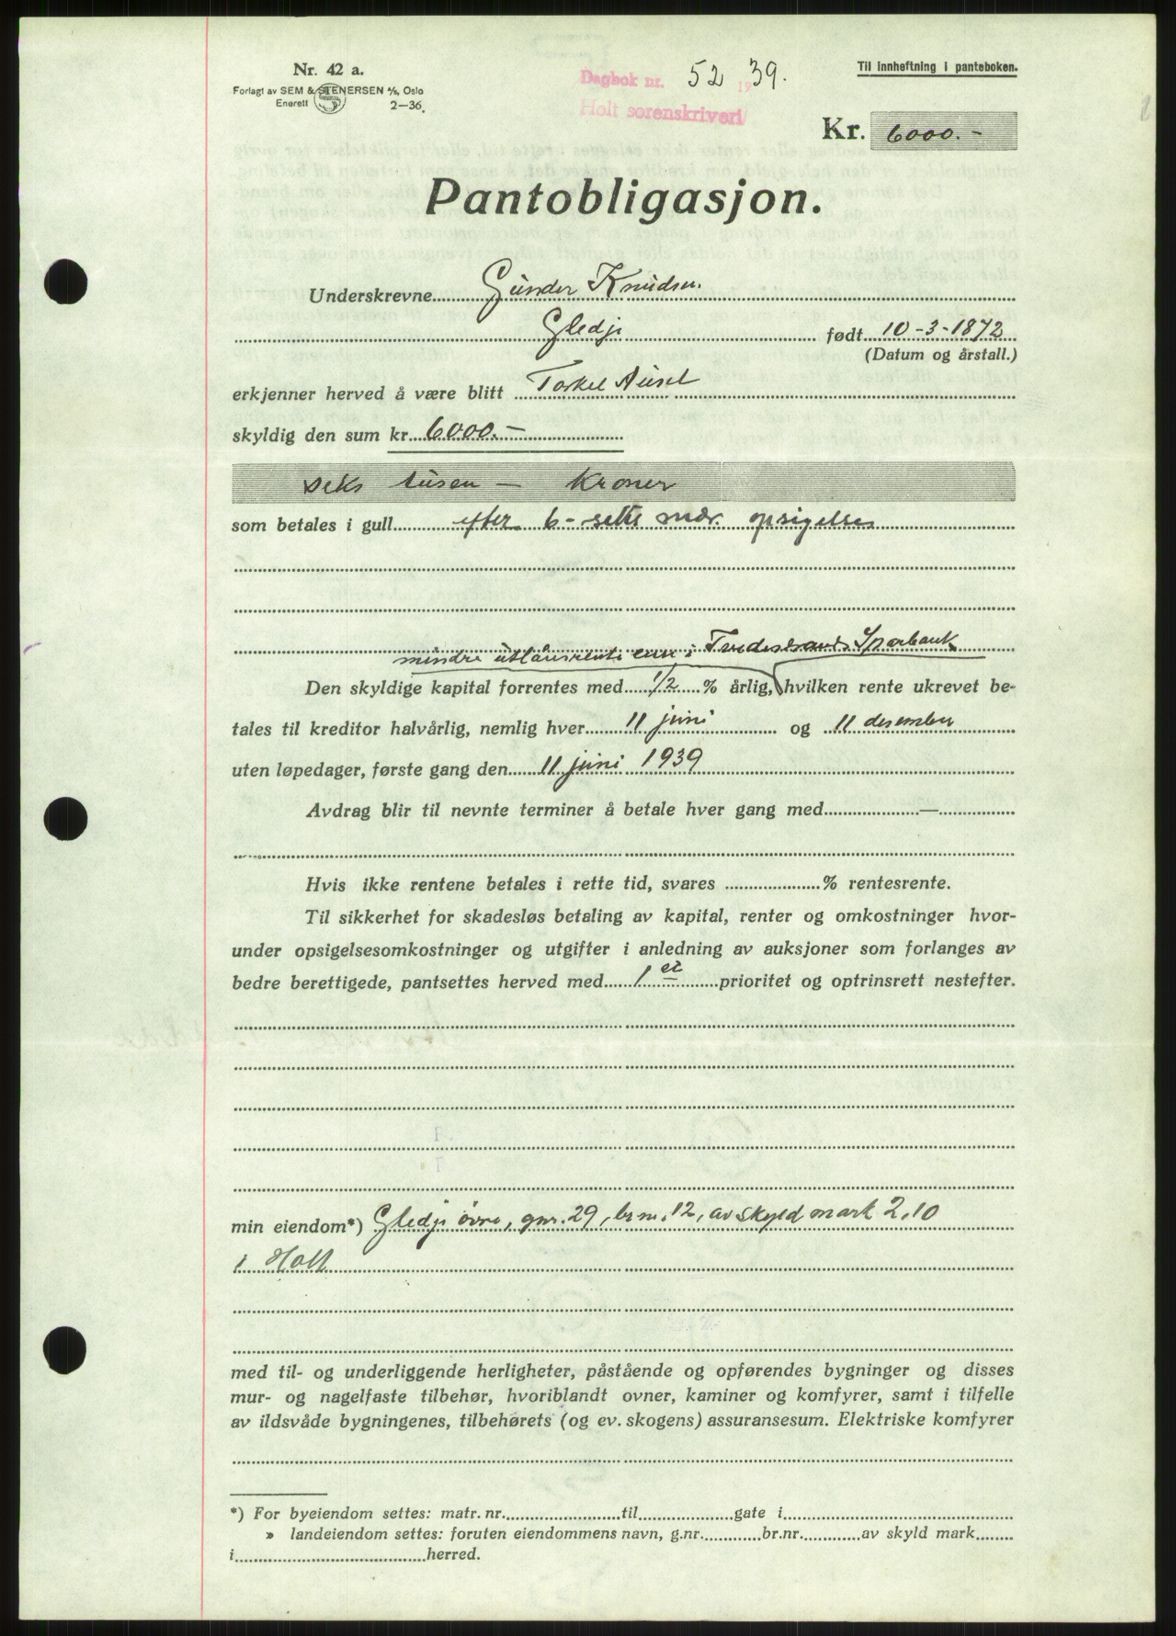 Nr. 42 a.
Forlagt av SEM & STENERSEN A/S, Oslo
Enerett 2—36.
Dagbok nr. 52 1939.
Holt sorenskriveri
Til innheftning i panteboken.
Kr. 6000.-
Pantobligasjon.
Underskrevne Gunder Knudsen
Gledje født 10-3-1872
(Datum og årstall.)
erkjenner herved å være blitt Torkel
skyldig den sum kr. 6000.-
seks tusen — kroner
som betales i gull efter 6- seks mdr. opsigelse
mindre utlånsrente enn i Tvedestrands Sparebank
Den skyldige kapital forrentes med 1/2 % årlig, hvilken rente ukrevet be-
tales til kreditor halvårlig, nemlig hver 11 juni og 11 desember
uten løpedager, første gang den 11 juni 1939
Avdrag blir til nevnte terminer å betale hver gang med —
Hvis ikke rentene betales i rette tid, svares % rentesrente.
Til sikkerhet for skadesløs betaling av kapital, renter og omkostninger hvor-
under opsigelsesomkostninger og utgifter i anledning av auksjoner som forlanges av
bedre berettigede, pantsettes herved med 1 prioritet og optrinsrett nestefter.
min eiendom*) Gledje øvre, gnr. 29, br.nr. 12, av skyld mark 2,10
i Holt
med til- og underliggende herligheter, påstående og opførendes bygninger og disses
mur- og nagelfaste tilbehør, hvoriblandt ovner, kaminer og komfyrer, samt i tilfelle
av ildsvåde bygningenes, tilbehørets (og ev. skogens) assuransesum. Elektriske komfyrer
*) For byeiendom settes: matr. nr. til gate i
» landeiendom settes: foruten eiendommens navn, g.nr. br.nr. av skyld mark
i herred.